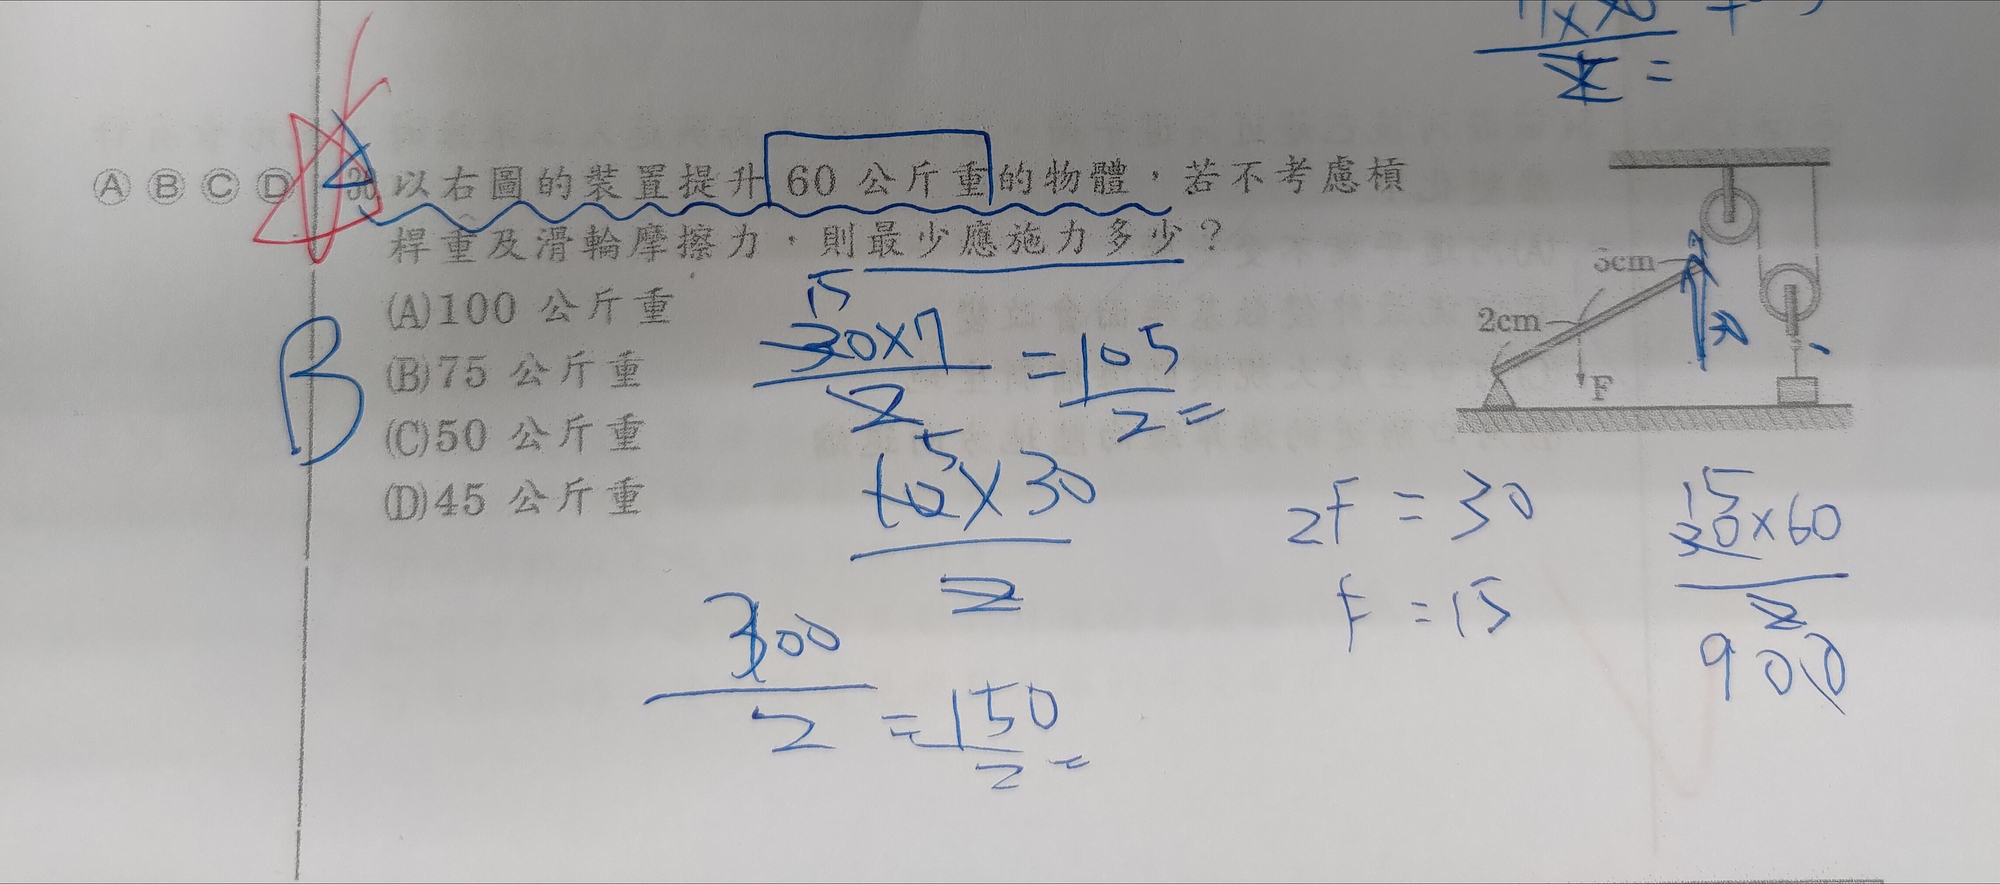 Ⓐ Ⓑ Ⓒ Ⓓ 以右圖的裝置提升 60 公斤重的物體，若不考慮槓
桿重及滑輪摩擦力，則最少應施力多少？
(A)100 公斤重
(B)75 公斤重
(C)50 公斤重
(D)45 公斤重
B
3cm
2cm
F
30
15
30×7
2
=
105
2
=
5
10×30
2
300
2
=
150
2
=
2F = 30
F = 15
15
30×60
2
900